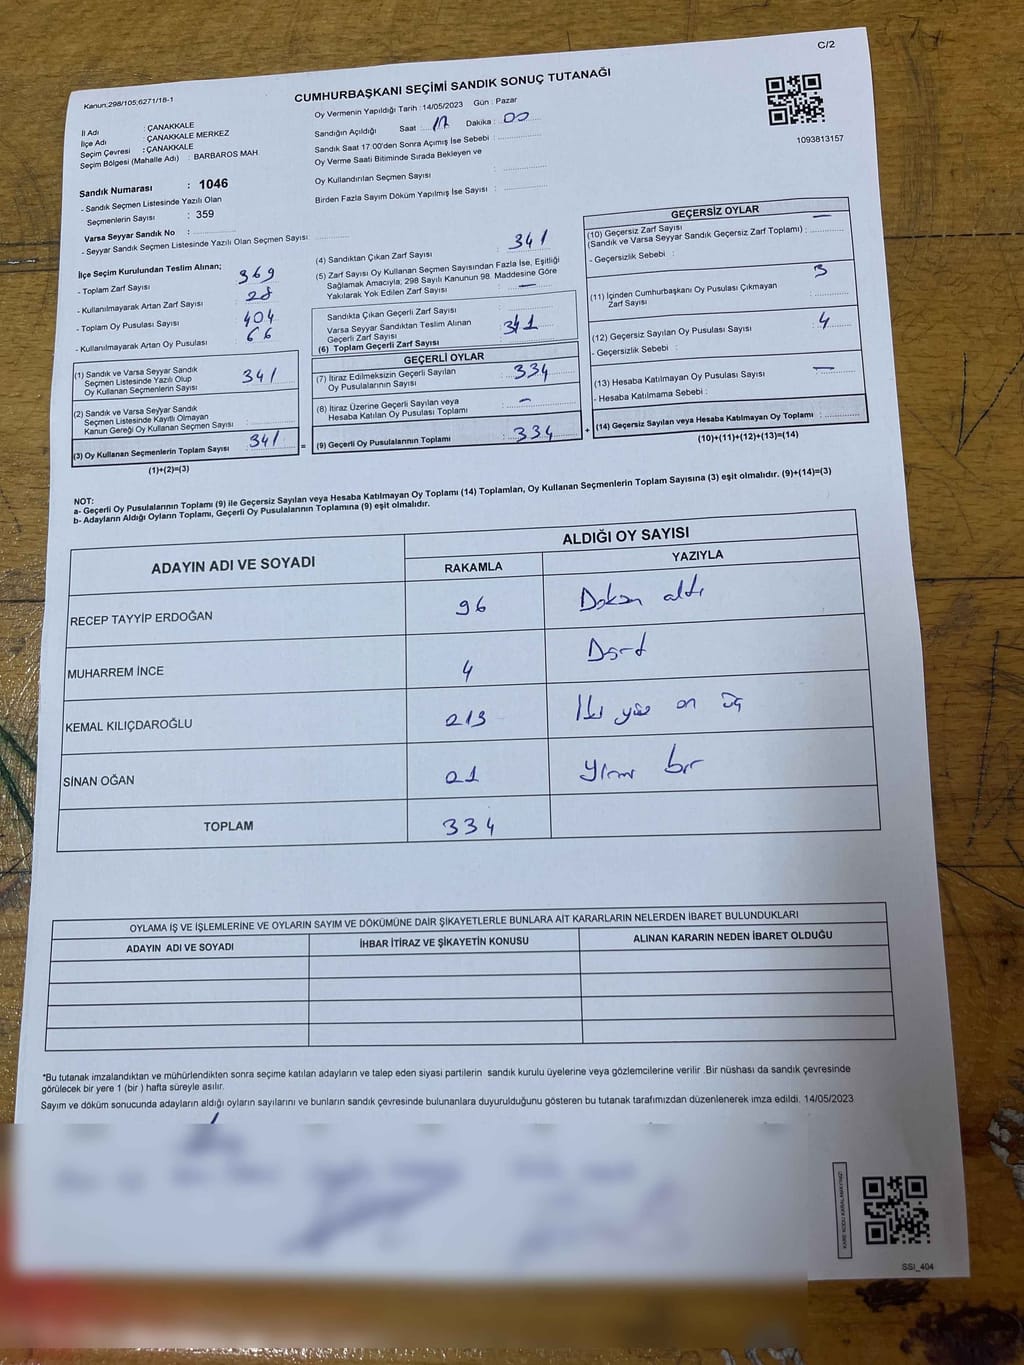 C/2
Kanun:298/105;6271/18-1
CUMHURBAŞKANI SEÇİMİ SANDIK SONUÇ TUTANAĞI
İl Adı : ÇANAKKALE
İlçe Adı : ÇANAKKALE MERKEZ
Seçim Çevresi : ÇANAKKALE
Seçim Bölgesi (Mahalle Adı) : BARBAROS MAH.
Sandık Numarası : 1046
- Sandık Seçmen Listesinde Yazılı Olan
Seçmenlerin Sayısı : 359
Varsa Seyyar Sandık No :
- Seyyar Sandık Seçmen Listesinde Yazılı Olan Seçmen Sayısı:
Oy Vermenin Yapıldığı Tarih : 14/05/2023 Gün : Pazar
Sandığın Açıldığı Saat : 17 Dakika : 00
Sandık Saat 17:00'den Sonra Açımış İse Sebebi :
Oy Verme Saati Bitiminde Sırada Bekleyen ve
Oy Kullandırılan Seçmen Sayısı :
Birden Fazla Sayım Döküm Yapılmış İse Sayısı :
1093813157
İlçe Seçim Kurulundan Teslim Alınan;
- Toplam Zarf Sayısı : 369
- Kullanılmayarak Artan Zarf Sayısı : 28
- Toplam Oy Pusulası Sayısı : 404
- Kullanılmayarak Artan Oy Pusulası : 66
(1) Sandık ve Varsa Seyyar Sandık
Seçmen Listesinde Yazılı Olup
Oy Kullanan Seçmenlerin Sayısı : 341
(2) Sandık ve Varsa Seyyar Sandık
Seçmen Listesinde Kayıtlı Olmayan
Kanun Gereği Oy Kullanan Seçmen Sayısı :
(3) Oy Kullanan Seçmenlerin Toplam Sayısı : 341
(1)+(2)=(3)
(4) Sandıktan Çıkan Zarf Sayısı : 341
(5) Zarf Sayısı Oy Kullanan Seçmen Sayısından Fazla İse, Eşitliği
Sağlamak Amacıyla; 298 Sayılı Kanunun 98. Maddesine Göre
Yakılarak Yok Edilen Zarf Sayısı : —
Sandıkta Çıkan Geçerli Zarf Sayısı
Varsa Seyyar Sandıktan Teslim Alınan
Geçerli Zarf Sayısı
(6) Toplam Geçerli Zarf Sayısı : 341
=
GEÇERLİ OYLAR
(7) İtiraz Edilmeksizin Geçerli Sayılan
Oy Pusulalarının Sayısı : 334
(8) İtiraz Üzerine Geçerli Sayılan veya
Hesaba Katılan Oy Pusulası Toplamı : —
(9) Geçerli Oy Pusulalarının Toplamı : 334
+
GEÇERSİZ OYLAR
(10) Geçersiz Zarf Sayısı —
(Sandık ve Varsa Seyyar Sandık Geçersiz Zarf Toplamı) :
- Geçersizlik Sebebi :
(11) İçinden Cumhurbaşkanı Oy Pusulası Çıkmayan
Zarf Sayısı : 3
(12) Geçersiz Sayılan Oy Pusulası Sayısı : 4
- Geçersizlik Sebebi :
(13) Hesaba Katılmayan Oy Pusulası Sayısı : —
- Hesaba Katılmama Sebebi :
(14) Geçersiz Sayılan veya Hesaba Katılmayan Oy Toplamı :
(10)+(11)+(12)+(13)=(14)
NOT:
a- Geçerli Oy Pusulalarının Toplamı (9) ile Geçersiz Sayılan veya Hesaba Katılmayan Oy Toplamı (14) Toplamları, Oy Kullanan Seçmenlerin Toplam Sayısına (3) eşit olmalıdır. (9)+(14)=(3)
b- Adayların Aldığı Oyların Toplamı, Geçerli Oy Pusulalarının Toplamına (9) eşit olmalıdır.
ADAYIN ADI VE SOYADI
ALDIĞI OY SAYISI
RAKAMLA YAZIYLA
RECEP TAYYİP ERDOĞAN 96 Doksan altı
MUHARREM İNCE 4 Dört
KEMAL KILIÇDAROĞLU 213 İki yüz on üç
SİNAN OĞAN 21 Yirmi bir
TOPLAM 334
OYLAMA İŞ VE İŞLEMLERİNE VE OYLARIN SAYIM VE DÖKÜMÜNE DAİR ŞİKAYETLERLE BUNLARA AİT KARARLARIN NELERDEN İBARET BULUNDUKLARI
ADAYIN ADI VE SOYADI İHBAR İTİRAZ VE ŞİKAYETİN KONUSU ALINAN KARARIN NEDEN İBARET OLDUĞU
*Bu tutanak imzalandıktan ve mühürlendikten sonra seçime katılan adayların ve talep eden siyasi partilerin sandık kurulu üyelerine veya gözlemcilerine verilir .Bir nüshası da sandık çevresinde
görülecek bir yere 1 (bir ) hafta süreyle asılır.
Sayım ve döküm sonucunda adayların aldığı oyların sayılarını ve bunların sandık çevresinde bulunanlara duyurulduğunu gösteren bu tutanak tarafımızdan düzenlenerek imza edildi. 14/05/2023
KARE KODU KARALAMAYINIZ!
SSI_404